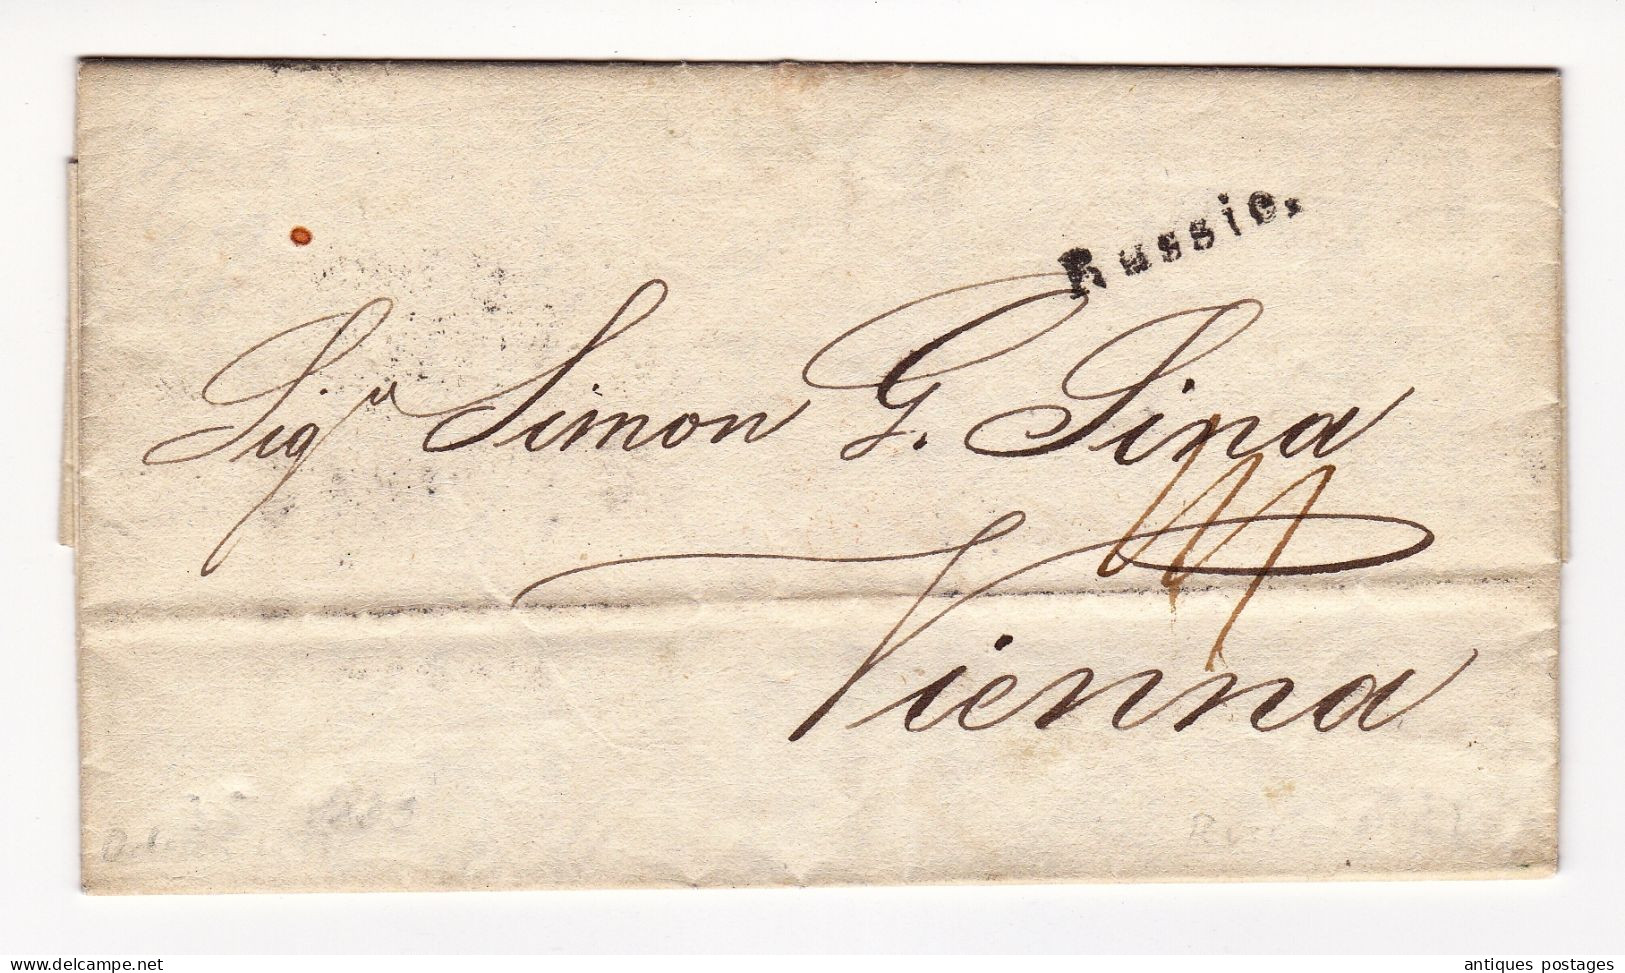 Russie.
Sig.r Simon G. Sina
Vienna
www.delcampe.net
antiques postages